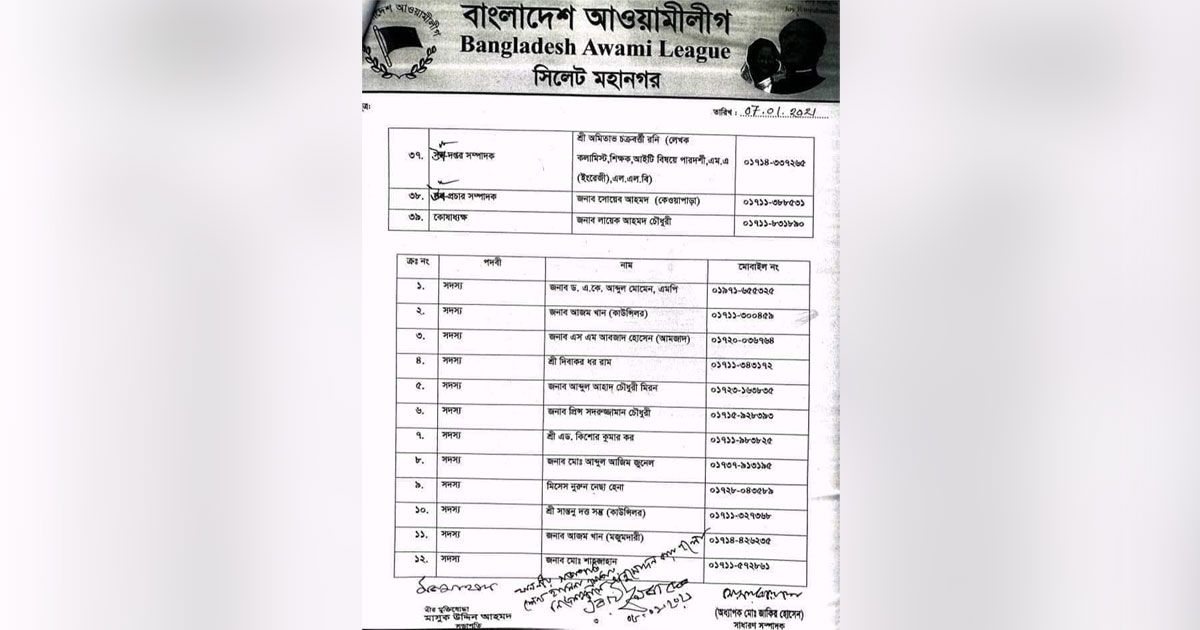 বাংলাদেশ আওয়ামীলীগ
Bangladesh Awami League
সিলেট মহানগর
তারিখ : 07.01.2021
৩৭. দপ্তর সম্পাদক শ্রী অমিতাভ চক্রবর্ত্তী রনি (লেখক
কলামিস্ট,শিক্ষক,আইটি বিষয়ে পারদর্শী,এম.এ ০১৭১৪-৩৩৭২৬৫
(ইংরেজী),এল.এল.বি)
৩৮. প্রচার সম্পাদক জনাব সোয়েব আহমদ (কেওয়াপাড়া) ০১৭১১-৩৮৮৫৩১
৩৯. কোষাধ্যক্ষ জনাব লায়েক আহমদ চৌধুরী ০১৭১১-৮৩১৮৯০
ক্রঃ নং পদবী নাম মোবাইল নং
১. সদস্য জনাব ড. এ.কে. আব্দুল মোমেন, এমপি ০১৯৭১-৬৫৫৩২৫
২. সদস্য জনাব আজম খান (কাউন্সিলর) ০১৭১১-৩০০৪৫৯
৩. সদস্য জনাব এস এম আবজাদ হোসেন (আমজাদ) ০১৭২০-০৩৬৭৬৪
৪. সদস্য শ্রী দিবাকর ধর রাম ০১৭১১-৩৪৩১৭২
৫. সদস্য জনাব আব্দুল আহাদ চৌধুরী মিরন ০১৭২৩-১৬৩৮৩৫
৬. সদস্য জনাব প্রিন্স সদরুজ্জামান চৌধুরী ০১৭১৫-৯২৮৩৯৩
৭. সদস্য শ্রী এড. কিশোর কুমার কর ০১৭১১-৯৮৩৮২৫
৮. সদস্য জনাব মোঃ আব্দুল আজিম জুনেল ০১৭৩৭-৯১৩১৯৫
৯. সদস্য মিসেস নুরুন নেছা হেনা ০১৭২৮-০৪৩৫৮৯
১০. সদস্য শ্রী সান্তনু দত্ত সন্তু (কাউন্সিলর) ০১৭১১-৩২৭৩৬৮
১১. সদস্য জনাব আজম খান (মজুমদারী) ০১৭১৪-৪২৬২৩৫
১২. সদস্য জনাব মোঃ শাহজাহান ০১৭১১-৫৭২৮৬১
বীর মুক্তিযোদ্ধা
মাসুক উদ্দিন আহমদ
সভাপতি
(অধ্যাপক মোঃ জাকির হোসেন)
সাধারণ সম্পাদক